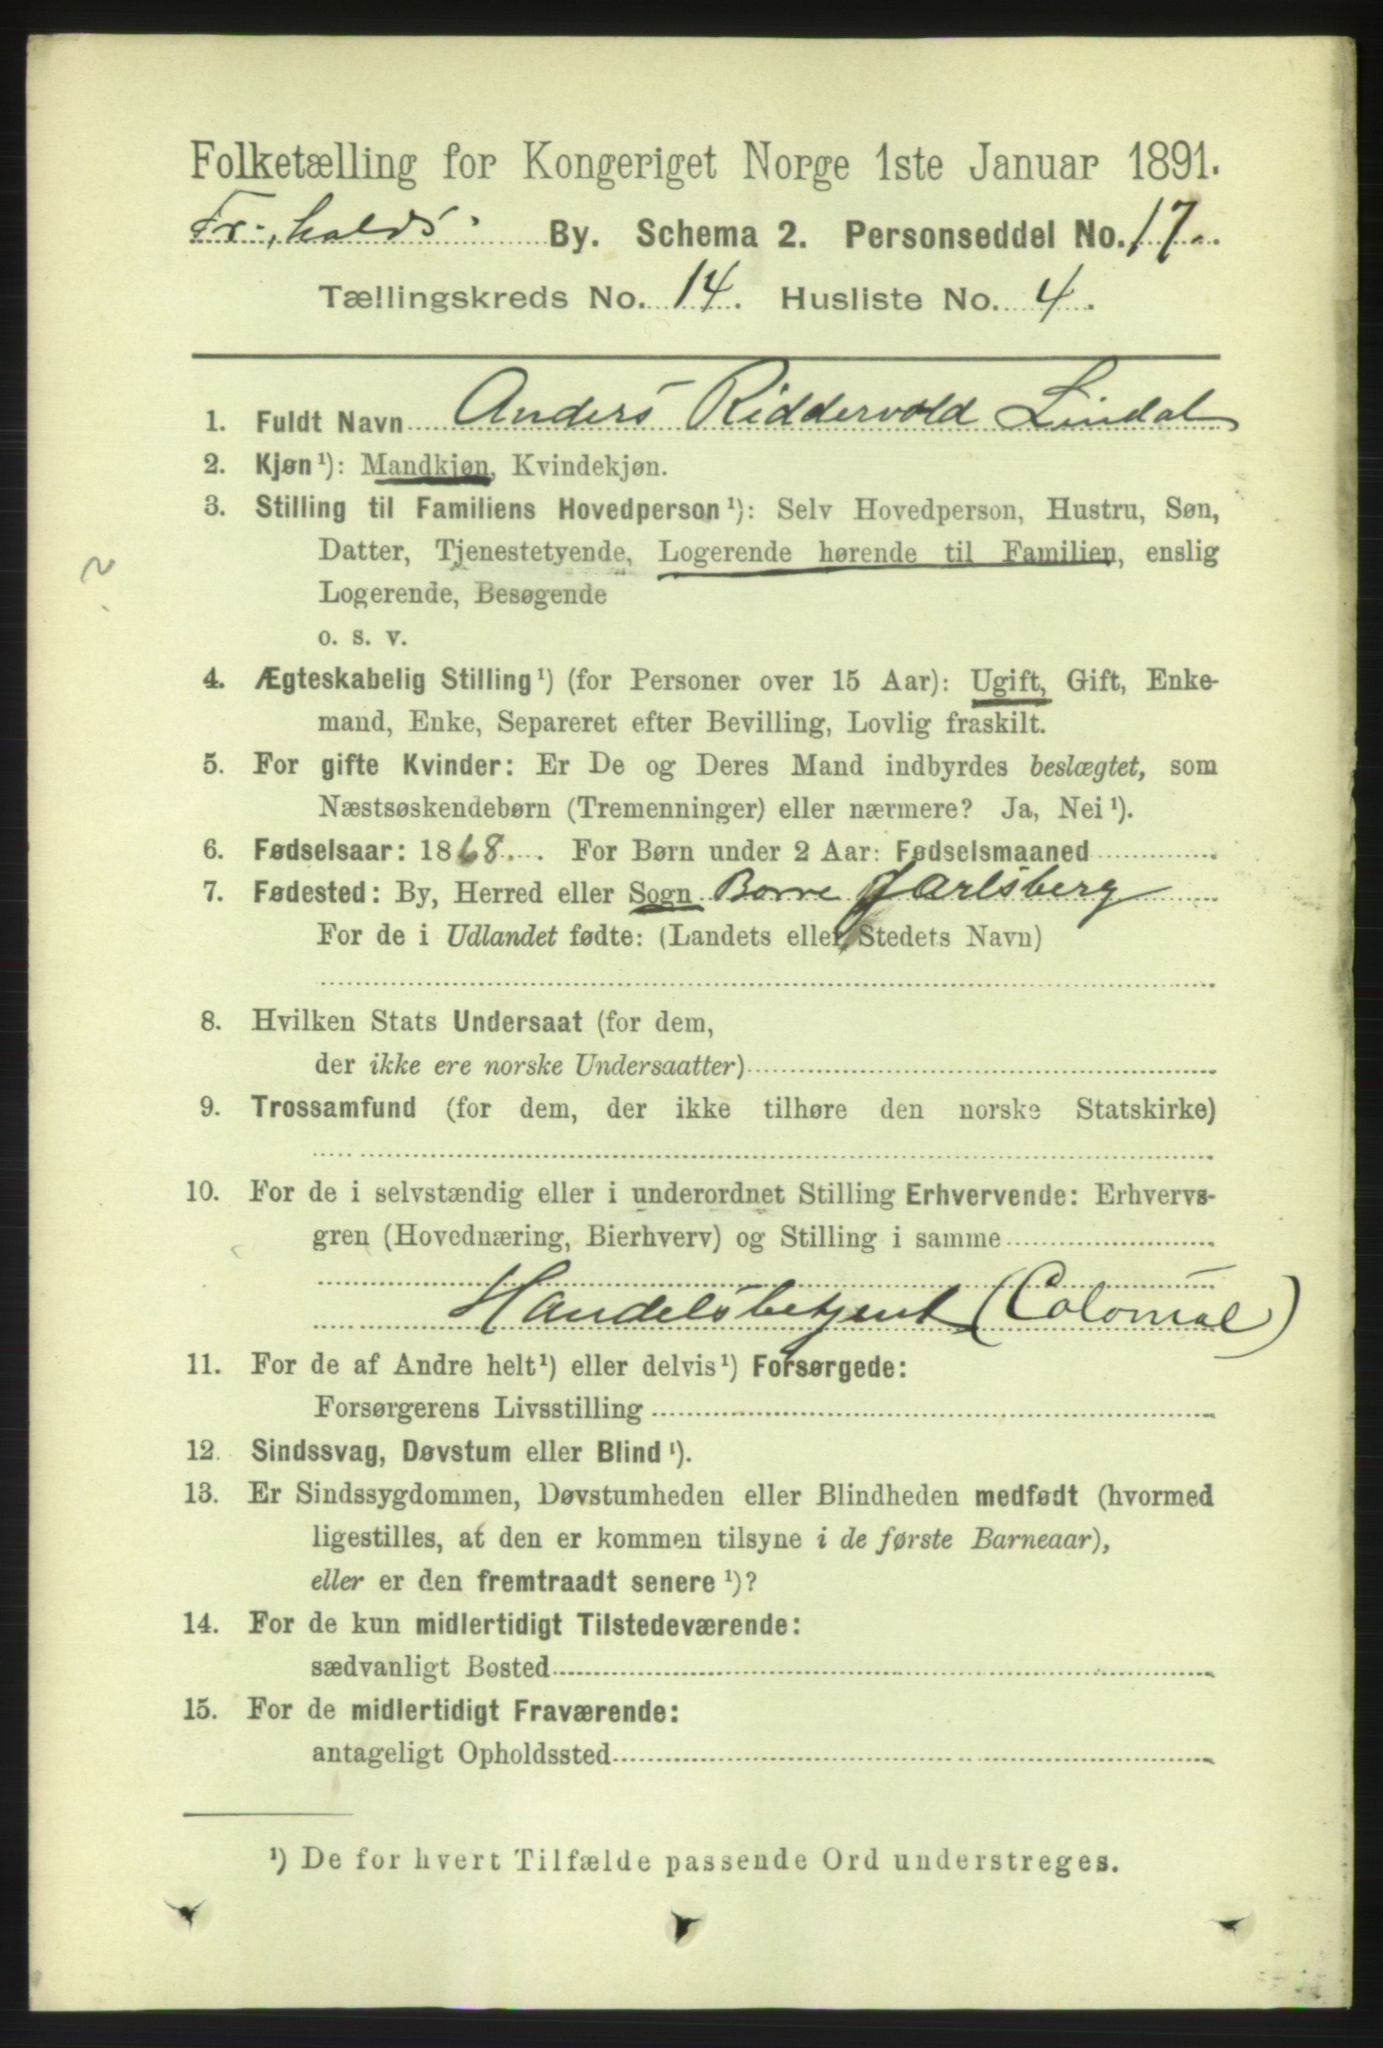 Folketælling for Kongeriget Norge 1ste Januar 1891.
Fr.halds By. Schema 2. Personseddel No. 17.
Tællingskreds No. 14. Husliste No. 4.
1. Fuldt Navn Anders Riddervold Lindal
2. Kjøn¹): Mandkjøn, Kvindekjøn.
3. Stilling til Familiens Hovedperson¹): Selv Hovedperson, Hustru, Søn,
Datter, Tjenestetyende, Logerende hørende til Familien, enslig
Logerende, Besøgende
o. s. v.
4. Ægteskabelig Stilling¹) (for Personer over 15 Aar): Ugift, Gift, Enke-
mand, Enke, Separeret efter Bevilling, Lovlig fraskilt.
5. For gifte Kvinder: Er De og Deres Mand indbyrdes beslægtet, som
Næstsøskendebørn (Tremenninger) eller nærmere? Ja, Nei¹).
6. Fødselsaar: 1868. For Børn under 2 Aar: Fødselsmaaned
7. Fødested: By, Herred eller Sogn Borre Jarlsberg
For de i Udlandet fødte: (Landets eller Stedets Navn)
8. Hvilken Stats Undersaat (for dem,
der ikke ere norske Undersaatter)
9. Trossamfund (for dem, der ikke tilhøre den norske Statskirke)
10. For de i selvstændig eller i underordnet Stilling Erhvervende: Erhvervs-
gren (Hovednæring, Bierhverv) og Stilling i samme
Handelsbetjent (Colonial)
11. For de af Andre helt¹) eller delvis¹) Forsørgede:
Forsørgerens Livsstilling
12. Sindssvag, Døvstum eller Blind¹).
13. Er Sindssygdommen, Døvstumheden eller Blindheden medfødt (hvormed
ligestilles, at den er kommen tilsyne i de første Barneaar),
eller er den fremtraadt senere¹)?
14. For de kun midlertidigt Tilstedeværende:
sædvanligt Bosted
15. For de midlertidigt Fraværende:
antageligt Opholdssted
¹) De for hvert Tilfælde passende Ord understreges.